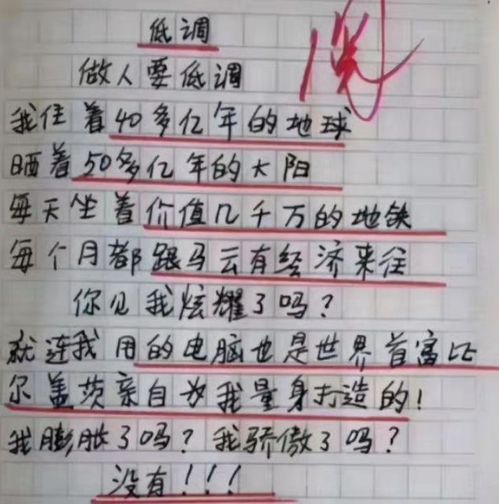 低调
阅
做人要低调
我住着40多亿年的地球
晒着50多亿年的太阳
每天坐着价值几千万的地铁
每个月都跟马云有经济来往
你见我炫耀了吗？
就连我用的电脑也是世界首富比
尔盖茨亲自为我量身打造的！
我膨胀了吗？我骄傲了吗？
没有！！！